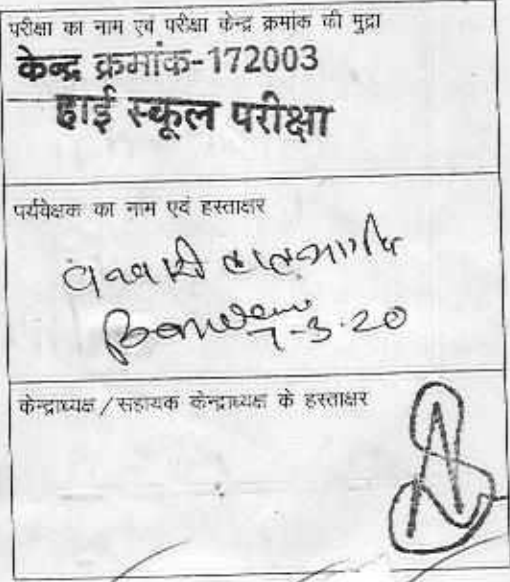 परीक्षा का नाम एवं परीक्षा केन्द्र क्रमांक की मुद्रा
केन्द्र क्रमांक-172003
हाई स्कूल परीक्षा
पर्यवेक्षक का नाम एवं हस्ताक्षर
7-3-20
केन्द्राध्यक्ष/सहायक केन्द्राध्यक्ष के हस्ताक्षर